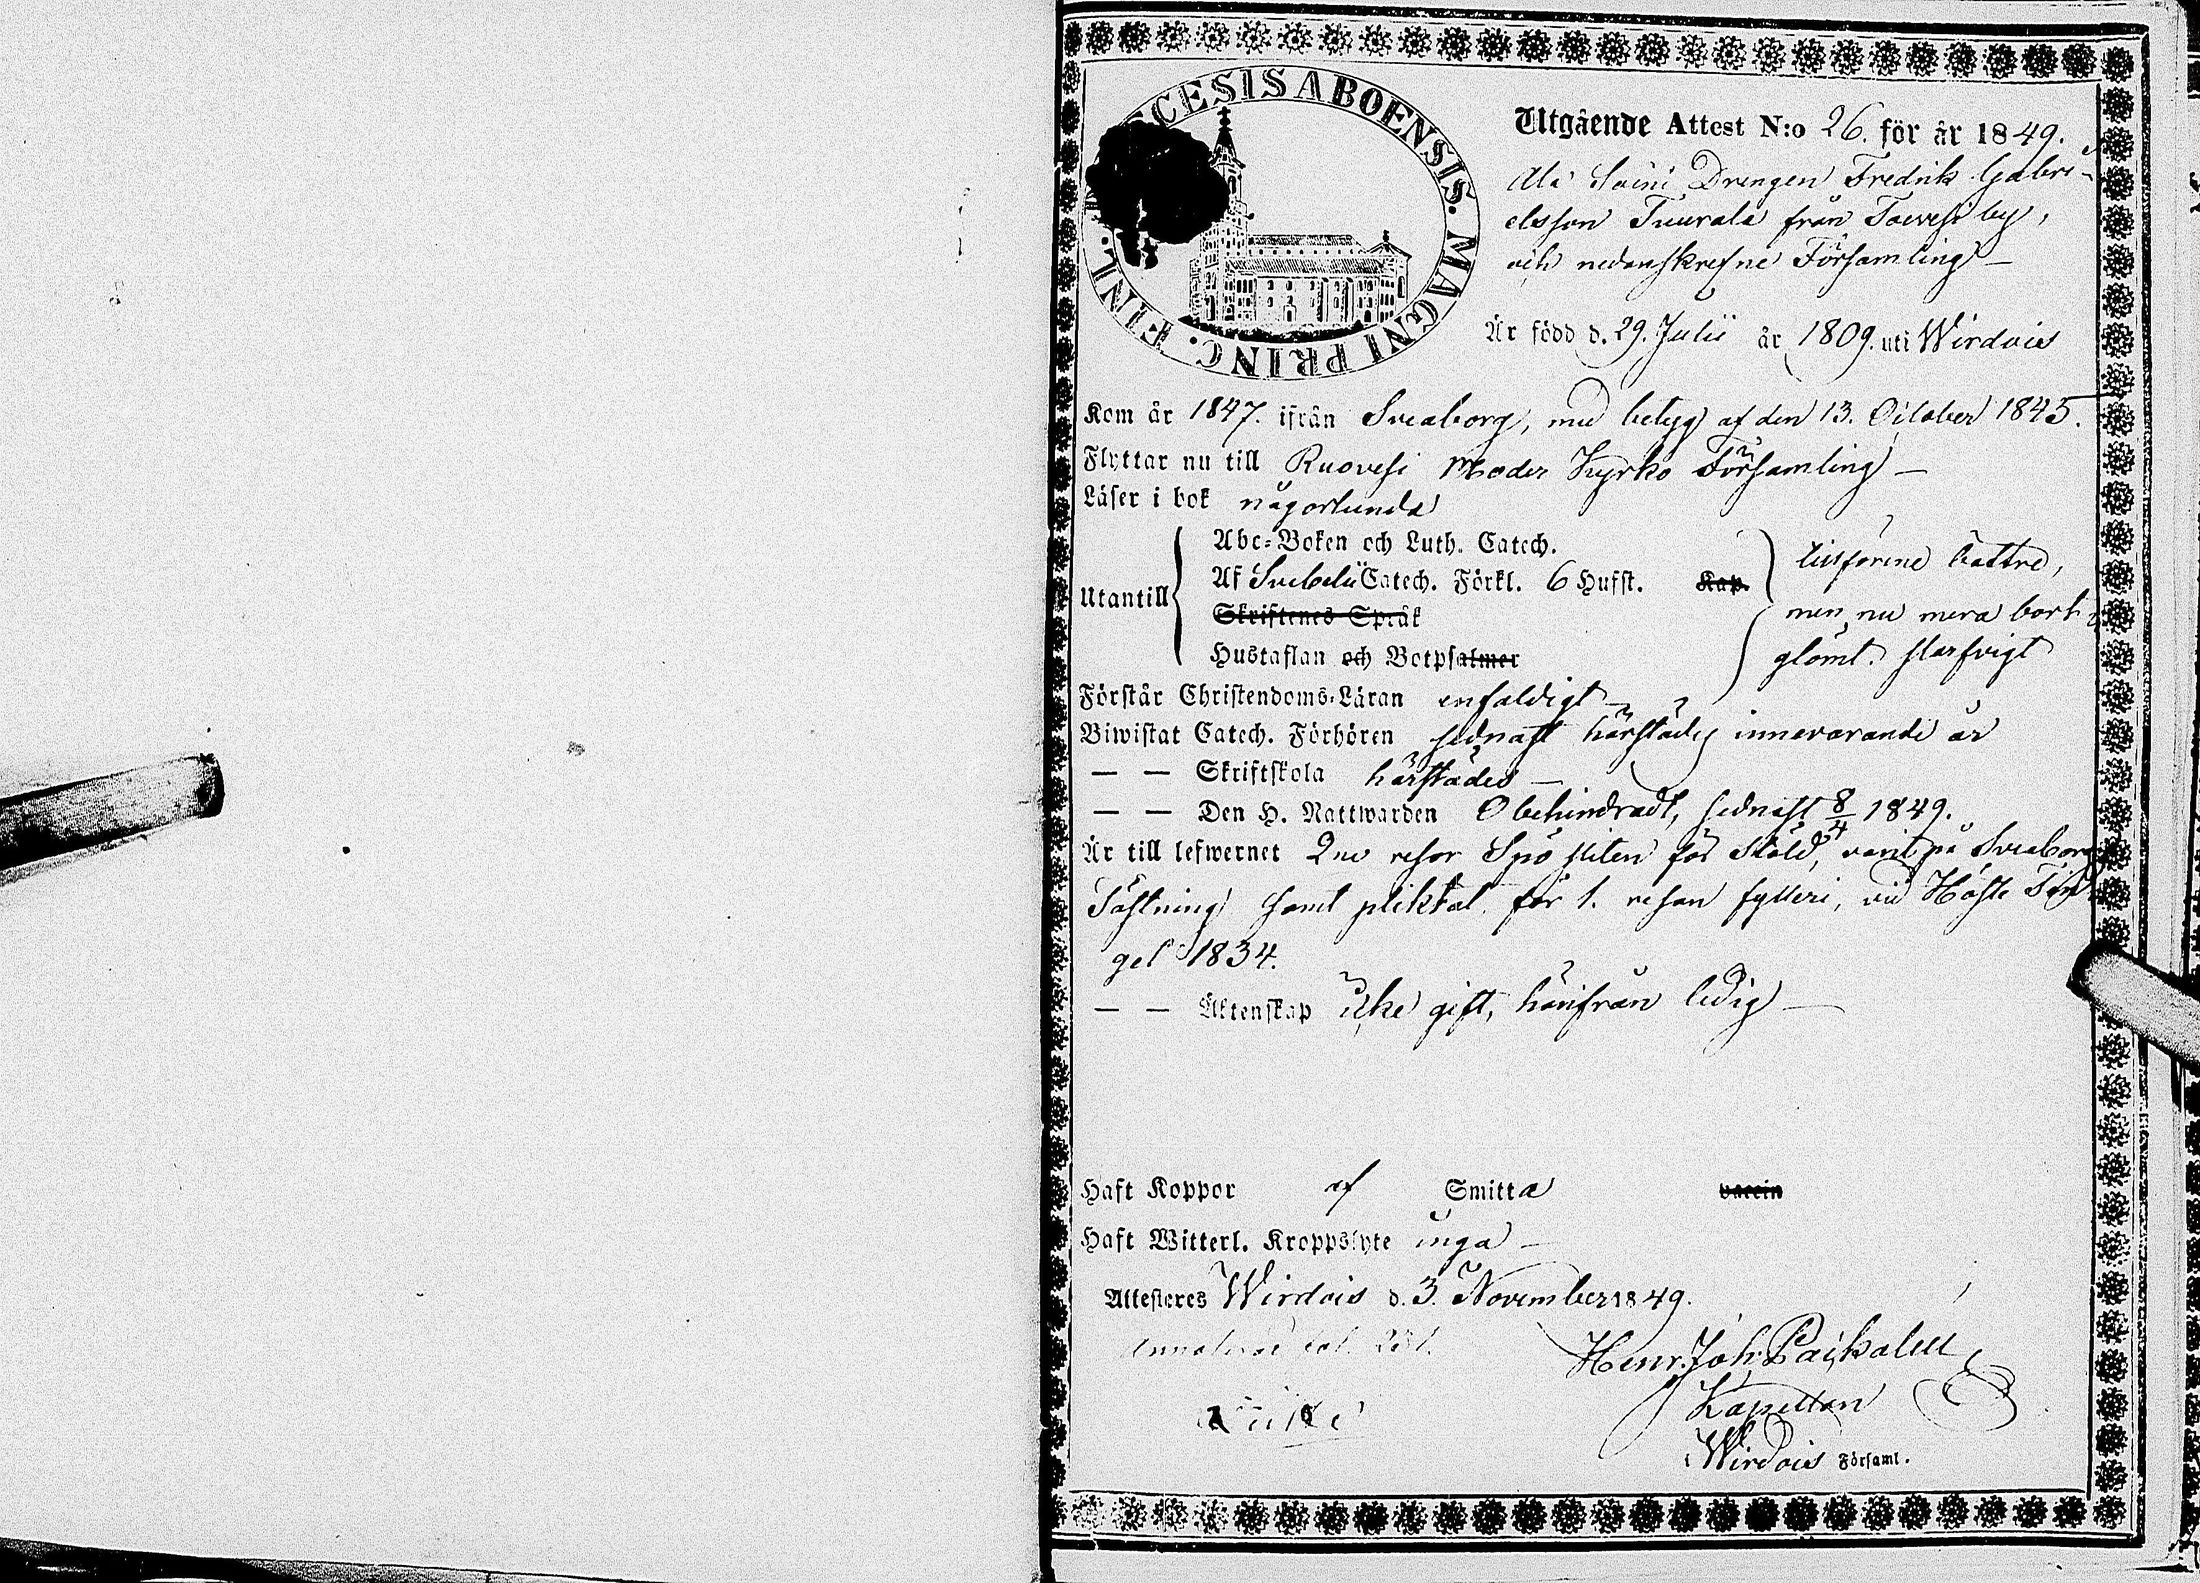 CESIS ABOENSIS. MAGNI PRINC. FINL.
Utgående Attest N:o 26. för år 1849.
Ala Soini Drengen Fredrik Gabri-
elsson Tuurala från Toivesi by,
och nedanskrefne Församling —
Är född d. 29. Julii år 1809. uti Wirdois
Kom år 1847. ifrån Sveaborg, med betyg af den 13. October 1845.
Flyttar nu till Ruovesi Moder Kyrko Församling —
Läser i bok någorlunda
Utantill
Abc-Boken och Luth. Catech.
Af Svebelii Catech. Förkl. 6 Hufst. Kap.
Skriftenes Språk
Hustaflan och Botpsalmer
tillförene bättre,
men nu mera bort-
glömt. slarfvigt
Förstår Christendoms-Läran enfaldigt —
Biwistat Catech. Förhören sednast härstädes innevarande år
— — Skriftskola härstädes —
— — Den H. Nattwarden Obehindradt, sednast 8/4 1849.
Är till lefwernet 2ne resor Spö sliten för Stöld, varit på Sveaborgs
Fästning samt pliktat för 1. resan fylleri, vid Höste Tin
get 1834.
— — Äktenskap icke gift, härifrån ledig —
Haft Koppor af Smitta vaccin
Haft Witterl. Kroppslyte inga —
Attesteras Wirdois d. 3. November 1849.
Henr. Joh.
Kapellan
Wirdois Församl.